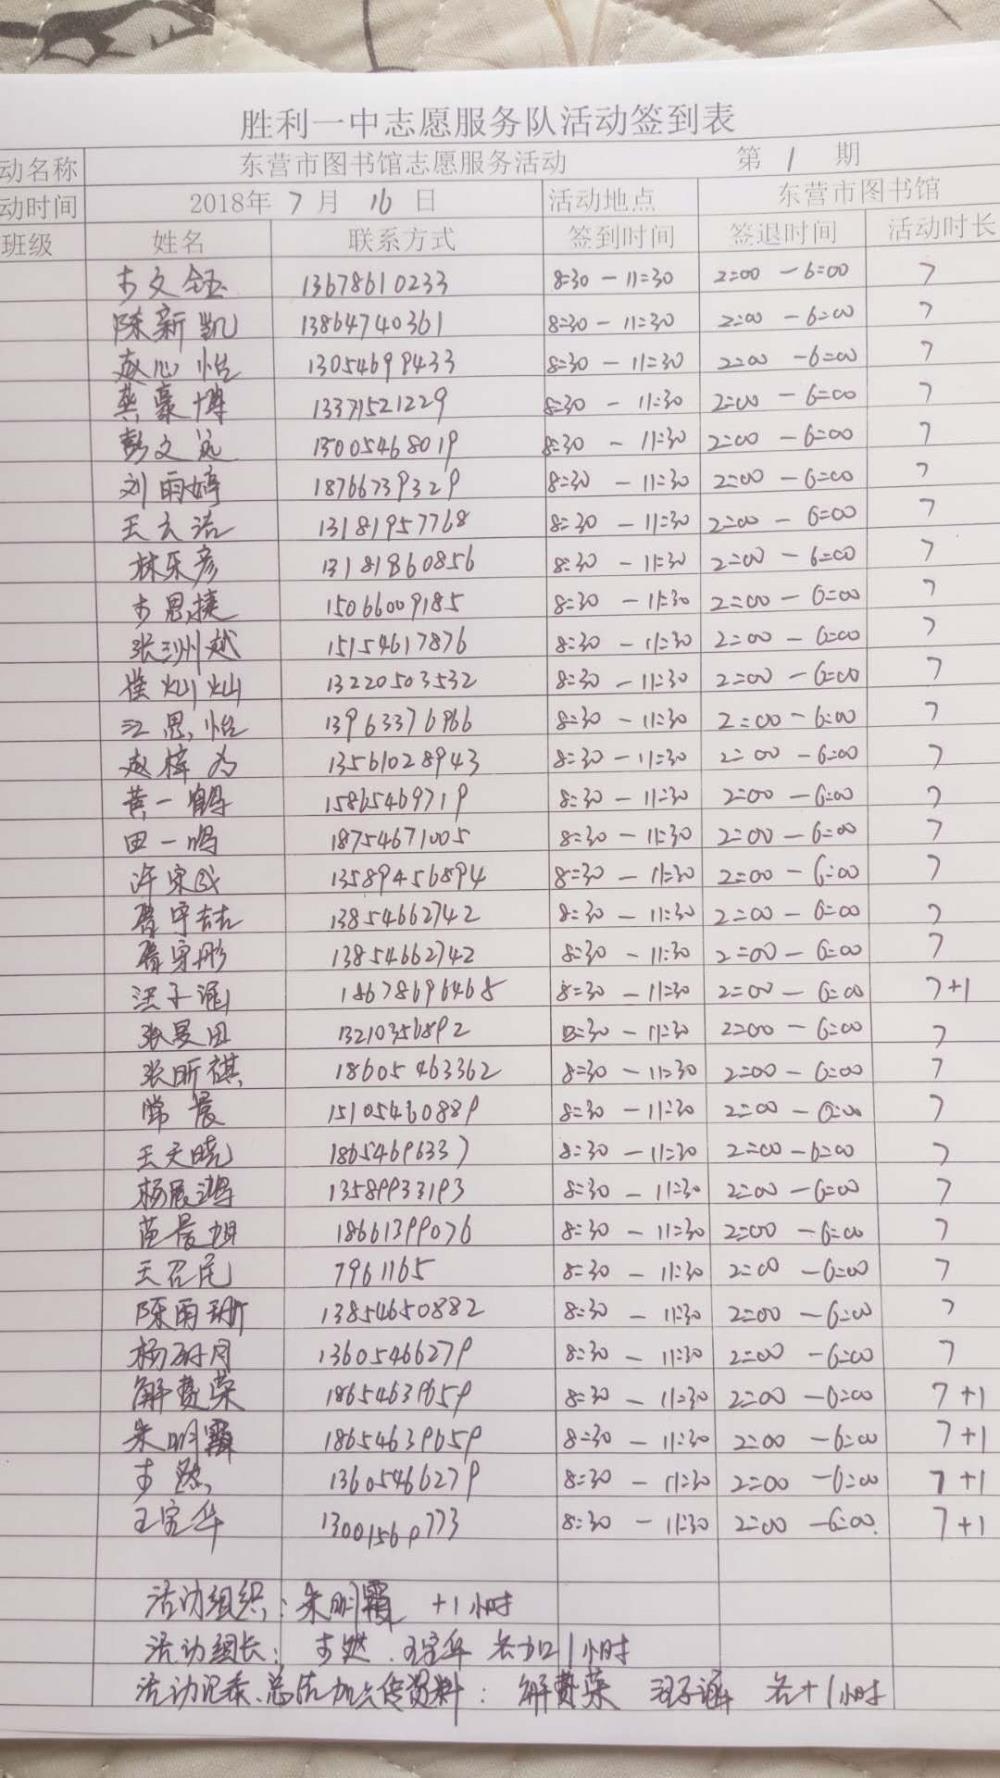 胜利一中志愿服务队活动签到表
动名称 东营市图书馆志愿服务活动 第 1 期
动时间 2018年 7 月 16 日 活动地点 东营市图书馆
班级 姓名 联系方式 签到时间 签退时间 活动时长
文钰 13678610233 8:30 - 11:30 2:00 - 6:00 7
陈新凯 13864740361 8:30 - 11:30 2:00 - 6:00 7
赵心怡 13054699433 8:30 - 11:30 2:00 - 6:00 7
燕豪博 13371521229 8:30 - 11:30 2:00 - 6:00 7
彭文远 13005468019 8:30 - 11:30 2:00 - 6:00 7
刘雨婷 18766739329 8:30 - 11:30 2:00 - 6:00 7
王云浩 13181957768 8:30 - 11:30 2:00 - 6:00 7
林乐彦 13181860856 8:30 - 11:30 2:00 - 6:00 7
思捷 15066009185 8:30 - 11:30 2:00 - 6:00 7
张洲越 15154617876 8:30 - 11:30 2:00 - 6:00 7
崔灿灿 13220503532 8:30 - 11:30 2:00 - 6:00 7
江思怡 13963376966 8:30 - 11:30 2:00 - 6:00 7
赵梓为 13561028943 8:30 - 11:30 2:00 - 6:00 7
黄一鹤 15865469719 8:30 - 11:30 2:00 - 6:00 7
田一鸣 18754671005 8:30 - 11:30 2:00 - 6:00 7
许宋 13589456894 8:30 - 11:30 2:00 - 6:00 7
守喆 13854662742 8:30 - 11:30 2:00 - 6:00 7
守彤 13854662742 8:30 - 11:30 2:00 - 6:00 7
汪子涵 18678696468 8:30 - 11:30 2:00 - 6:00 7+1
张昊田 13210356892 8:30 - 11:30 2:00 - 6:00 7
张昕祺 18605463362 8:30 - 11:30 2:00 - 6:00 7
常晨 15105460889 8:30 - 11:30 2:00 - 6:00 7
王天晓 18654696337 8:30 - 11:30 2:00 - 6:00 7
杨展鸿 13589933193 8:30 - 11:30 2:00 - 6:00 7
苗晨旭 18661399076 8:30 - 11:30 2:00 - 6:00 7
王召尾 7961165 8:30 - 11:30 2:00 - 6:00 7
陈雨珊 13854650882 8:30 - 11:30 2:00 - 6:00 7
杨 13605466279 8:30 - 11:30 2:00 - 6:00 7
解费荣 18654639659 8:30 - 11:30 2:00 - 6:00 7+1
朱明霞 18654639659 8:30 - 11:30 2:00 - 6:00 7+1
燃 13605466279 8:30 - 11:30 2:00 - 6:00 7+1
王宝华 13001569773 8:30 - 11:30 2:00 - 6:00 7+1
活动组织: 朱明霞 +1小时
活动组长: 燃、王宝华 各加1小时
活动记录、总结加上传资料: 解费荣 汪子涵 各+1小时